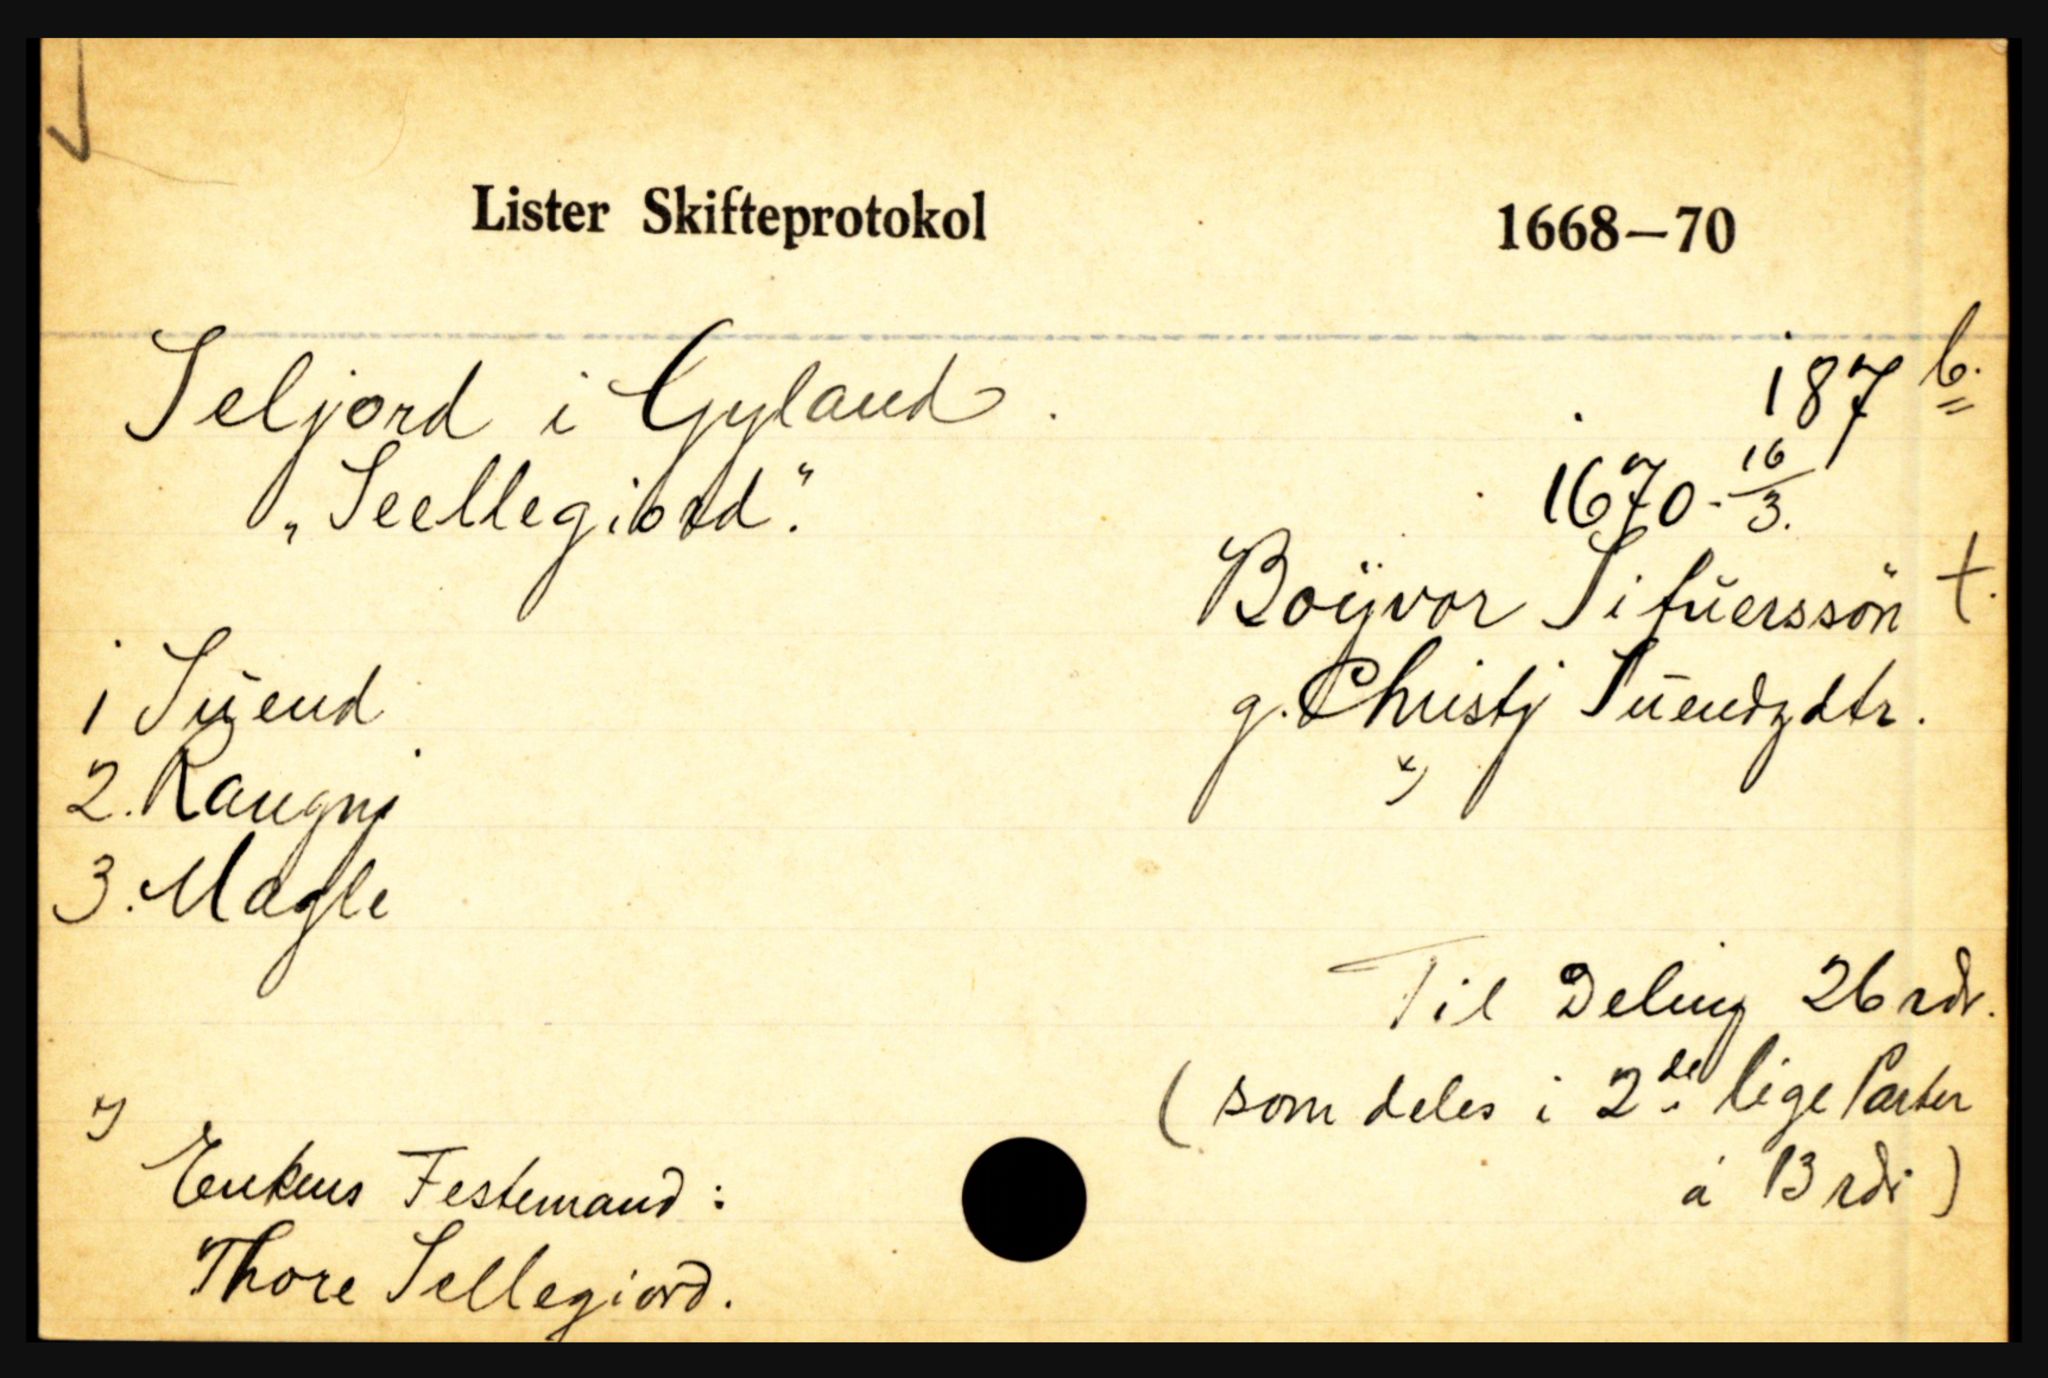 Lister Skifteprotokol 1668—70
Seljord i Gyland. 187 b.
„Seellegiord". 1670 - 16/3.
Boÿvor Sifuerssön †.
1 Suend g. Christj Suendzdtr.
2. Raugnj x)
3. Magle
Til Deling 26 rdr.
(som deles i 2de lige Parter
á 13 rdr)
x) Enkens Festemand:
Thore Sellegiord.